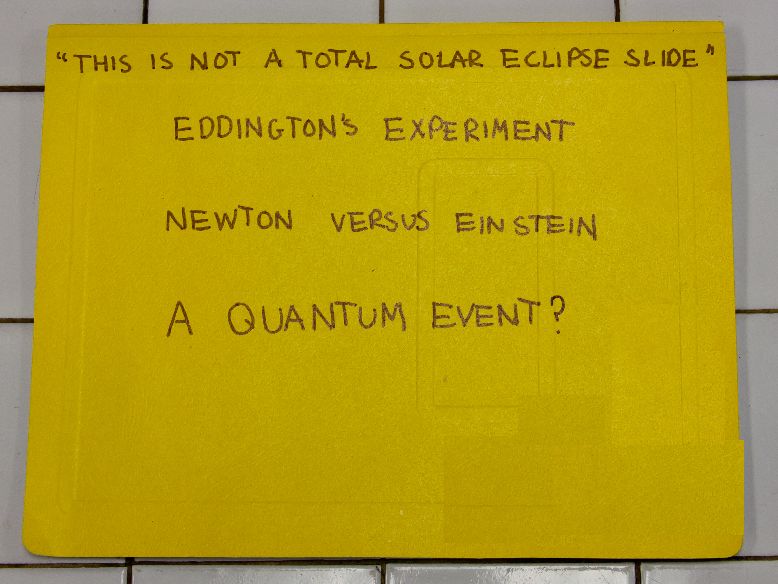 "THIS IS NOT A TOTAL SOLAR ECLIPSE SLIDE"
EDDINGTON'S EXPERIMENT
NEWTON VERSUS EINSTEIN
A QUANTUM EVENT?